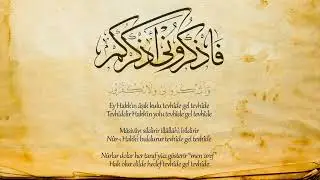 فاذكروني أذكركم
واشكروا لي ولا تكفرون
Ey Hakk'ın âşık kulu tevhîde gel tevhîde
Tevhîddir Hakk'ın yolu tevhîde gel tevhîde
Mâsivâyı sildirir illâllâhı bildirir
Nûr-ı Hakk'ı buldurur tevhîde gel tevhîde
Nûrlar dolar her taraf yüz gösterir "men aref"
Hak olur elde hedef tevhîde gel tevhîde